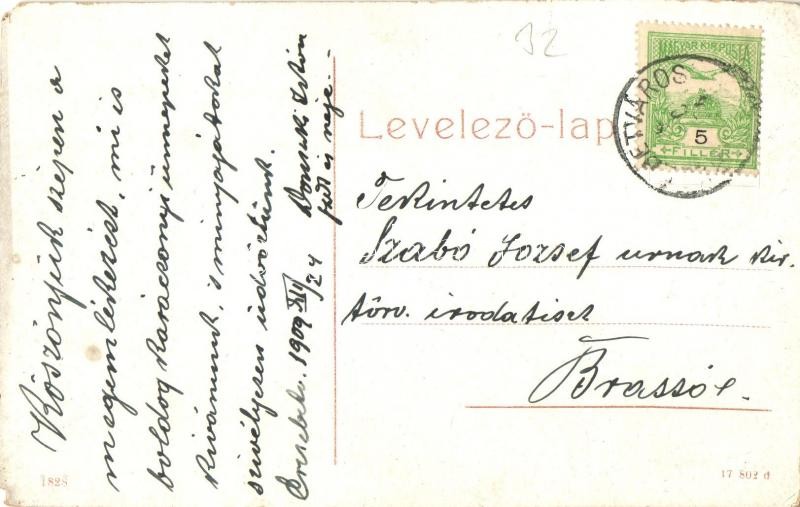 32
Levelező-lap
MAGYAR KIR. POSTA
5
FILLÉR
Tekintetes
Szabó József urnak kir.
törv. irodatiszt
Brassó
Köszönjük szépen a
megemlékezést, mi is
boldog karácsonyi ünnepeket
kivánunk, s mindnyájatokat
szivélyesen üdvözlünk.
1909 XII/24 István
és neje.
1828
17 802 d